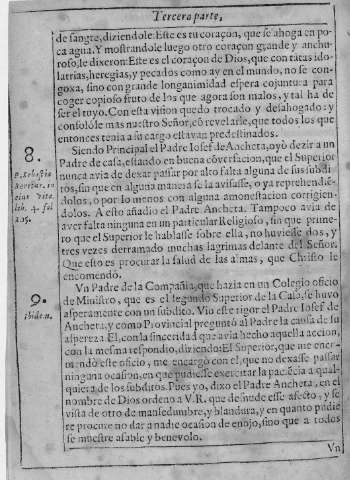 Tercera parte,
de sangre, diziendole: Este es tu coraçon, que se ahoga en po-
ca agua. Y mostrandole luego otro coraçon grande y anchu-
roso, le dixeron: Este es el coraçon de Dios, que con tātas ido-
latrias, heregias, y pecados como ay en el mundo, no se con-
goxa, sino con grande longanimidad espera cojuntura para
coger copioso fruto de los que agora son malos, y tal ha de
ser el tuyo. Con esta vision quedo trocado y desahogado: y
consolóle mas nuestro Señor, cō revelarle, que todos los que
entonces tenia a su cargo estavan predestinados.
8.
Siendo Principal el Padre Iosef de Ancheta, oyò dezir a un
Padre de casa, estando en buena cōversacion, que el Superior
nunca avia de dexar passar por alto falta alguna de sus subdi-
tos, sin que en alguna manera se la avisasse, o ya reprehendiē-
dolos, o por lo menos con alguna amonestacion corrigien-
dolos. A esto añadio el Padre Ancheta. Tampoco avia de
aver falta ninguna en un particular Religioso, sin que prime-
ro que el Superior le hablasse sobre ella, no huviesse dos, y
tres vezes derramado muchas lagrimas delante del Señor.
Que esto es procurar la salud de las almas, que Christo le
encomendò.
9.
ibidem.
Vn Padre de la Compañia, que hazia en un Colegio oficio
de Ministro, que es el segundo Superior de la Casa, se huvo
asperamente con un subdito. Vio este rigor el Padre Iosef de
Ancheta, y como Provincial preguntó al Padre la causa de su
aspereza. El, con la sinceridad que avia hecho aquella accion,
con la mesma respondio, diziendo: El Superior, que me enco-
mendò este oficio, me encargò con el, que no dexasse passar
ninguna ocasion, en que pudiesse exercitar la paciēcia a qual-
quiera de los subditos. Pues yo, dixo el Padre Ancheta, en el
nombre de Dios ordeno a V.R. que desnude esse afecto, y se
vista de otro de mansedumbre, y blandura, y en quanto pudie
re procure no dar a nadie ocasion de enojo, sino que a todos
se muestre afable y benevolo.
Vn